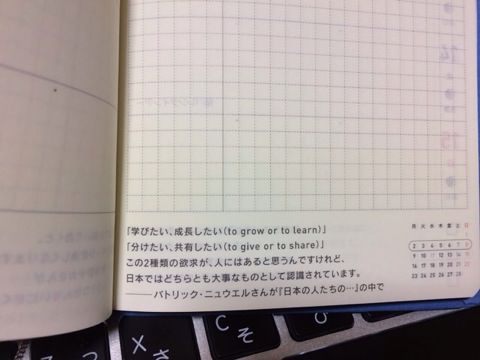 「学びたい、成長したい(to grow or to learn)」
「分けたい、共有したい(to give or to share)」
この2種類の欲求が、人にはあると思うんですけれど、
日本ではどちらとも大事なものとして認識されています。
――パトリック・ニュウエルさんが『日本の人たちの…』の中で
月 火 水 木 金 土 日
1
2 3 4 5 6 7 8
9 10 11 12 13 14 15
16 17 18 19 20 21 22
23 24 25 26 27 28
X さ
C そ